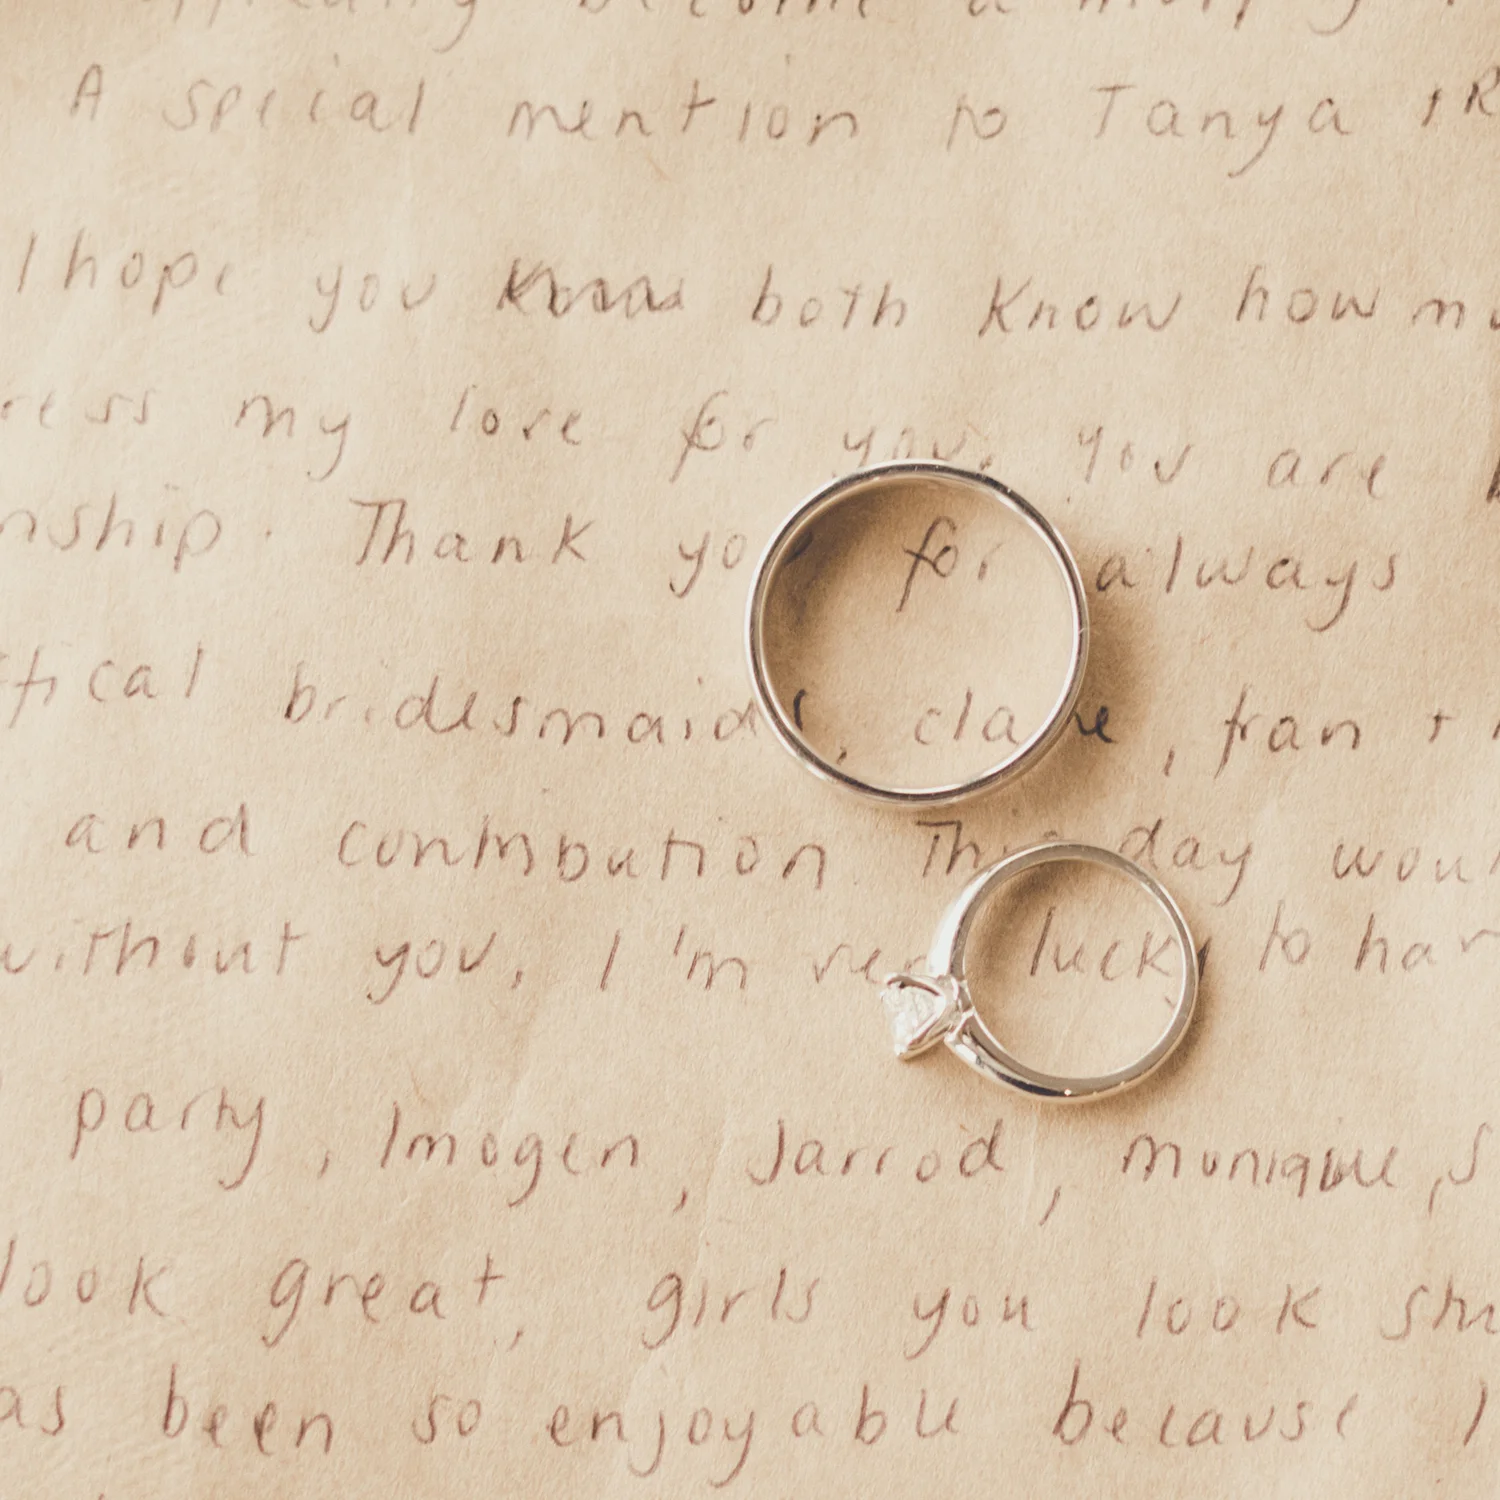 become a
A special mention to Tanya +
I hope you both know how
my love for you. You are
Thank you for always
bridesmaids, claire, fran +
and contribution. This day
without you. I'm very lucky to
party, Imogen, Jarrod, monique,
look great, girls you look
been so enjoyable because I